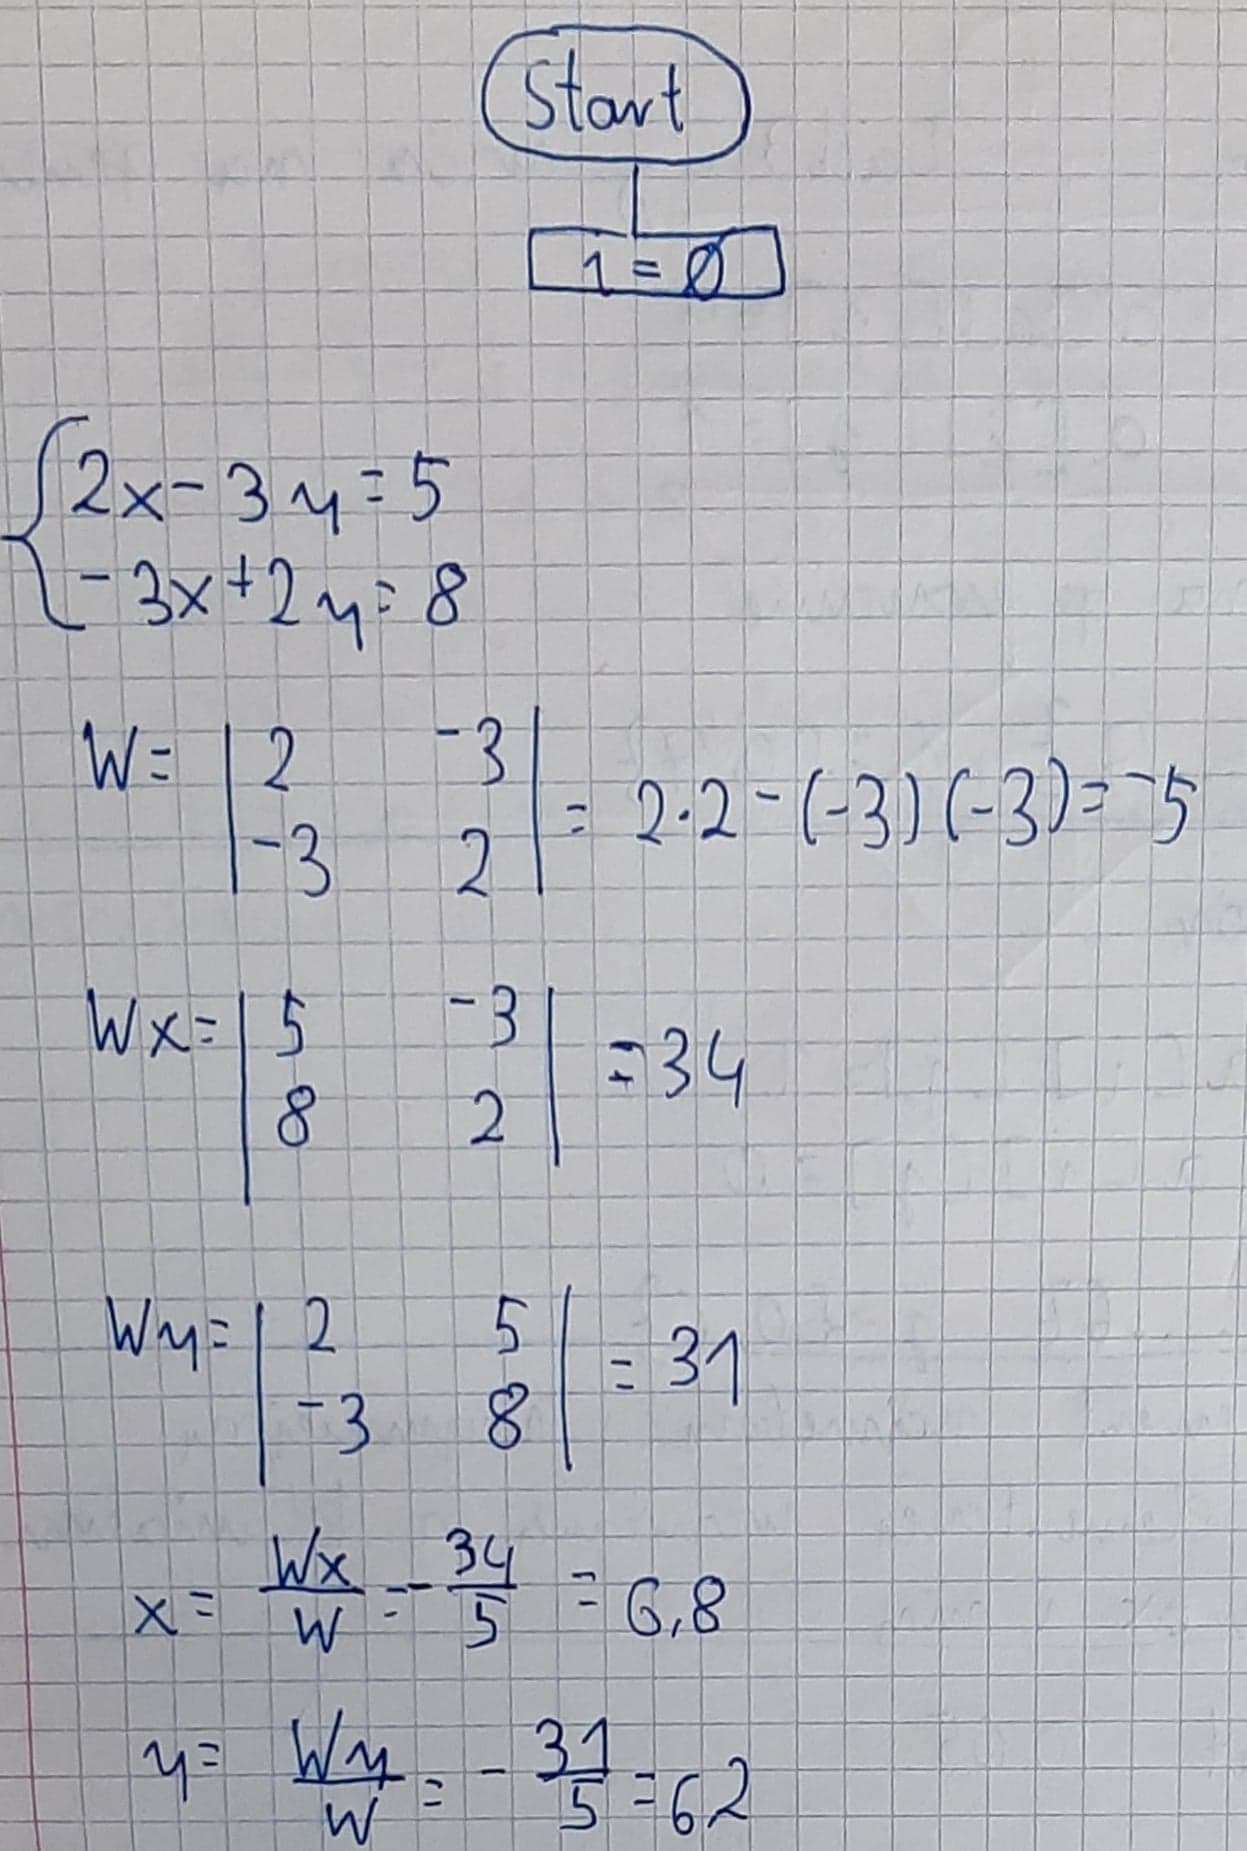 Start
1 = 0
2x - 3y = 5
-3x + 2y = 8
W = | 2 -3 |
| -3 2 | = 2·2 - (-3)(-3) = -5
Wx = | 5 -3 |
| 8 2 | = 34
Wy = | 2 5 |
| -3 8 | = 31
x = Wx/W = - 34/5 = 6,8
y = Wy/W = - 31/5 = 62